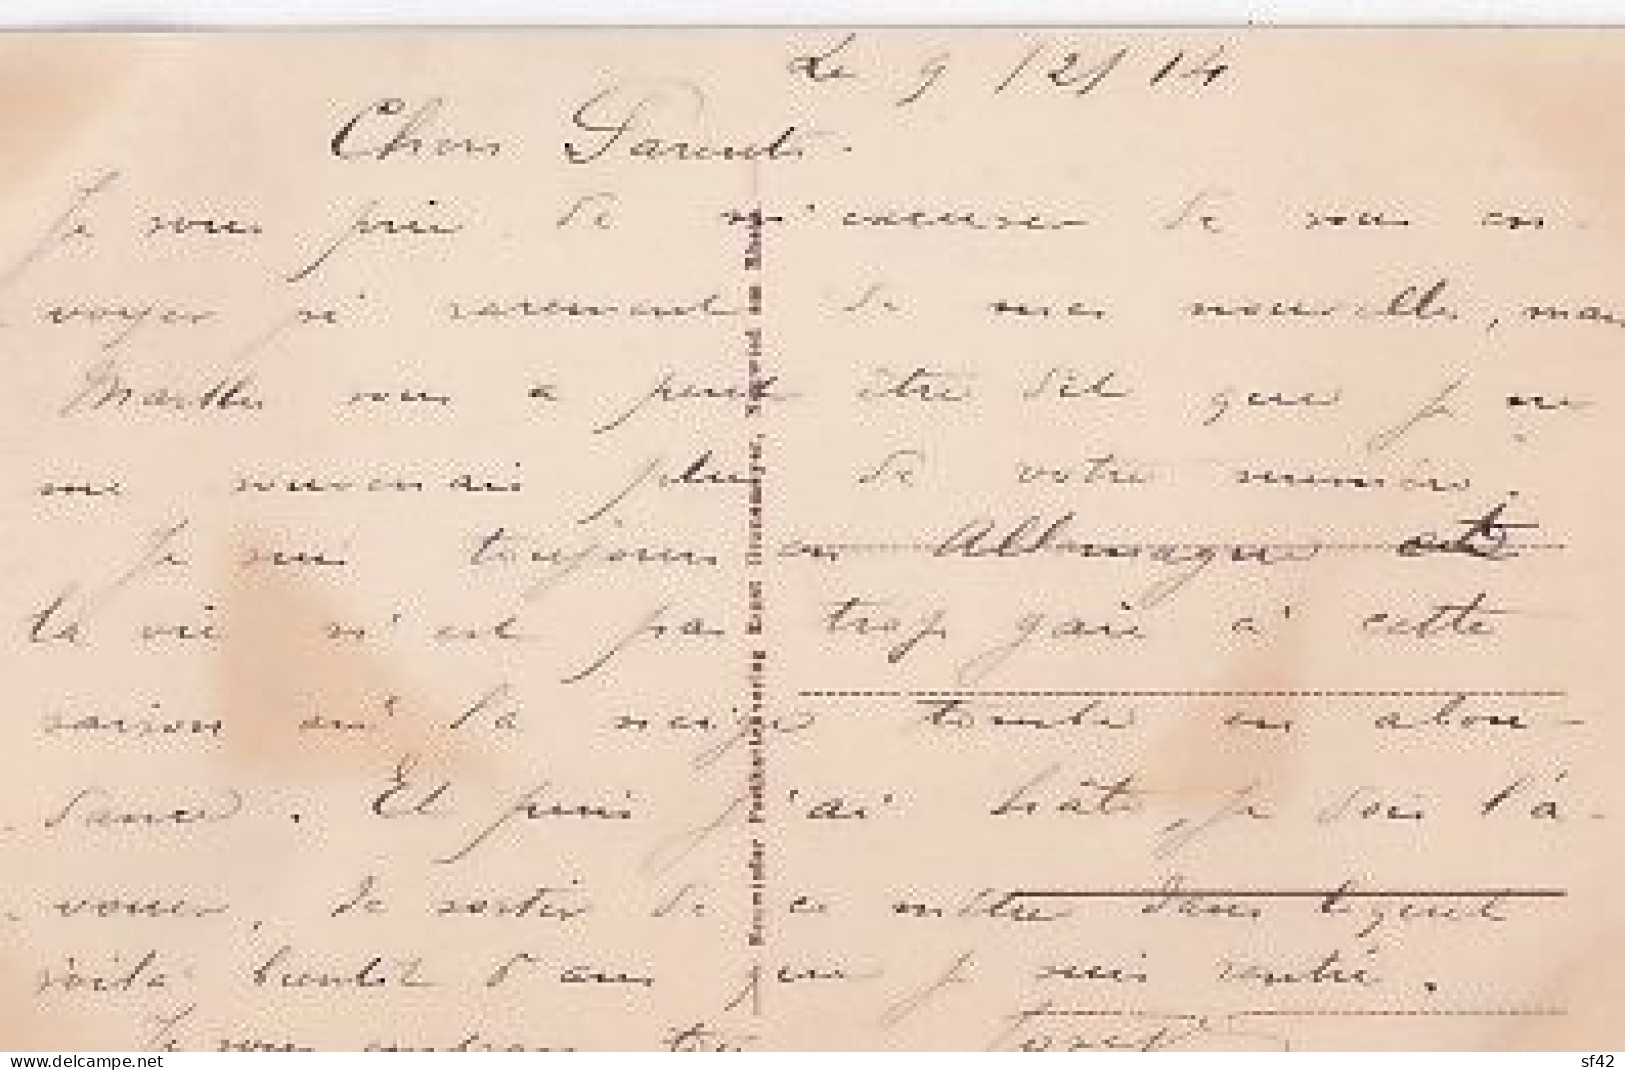 Le 9 /2/ 14
Chers Parents.
Je vous prie de m'excuser de vous en-
voyer si rarement de mes nouvelles, mais
Marthe vous a peut être dit que je ne
me souvenais plus de votre numéro.
Je suis toujours en Allemagne et
la vie n'est pas trop gaie à cette
saison où la neige tombe en abon-
dance. Et puis j'ai hâte, je dois l'a-
vouer, de sortir de ce métier dans lequel
voilà bientôt 5 ans que je suis rentré.
Je vous embrasse
Neuwieder Postkartenverlag Ernst Neuwied am Rhein
sf42